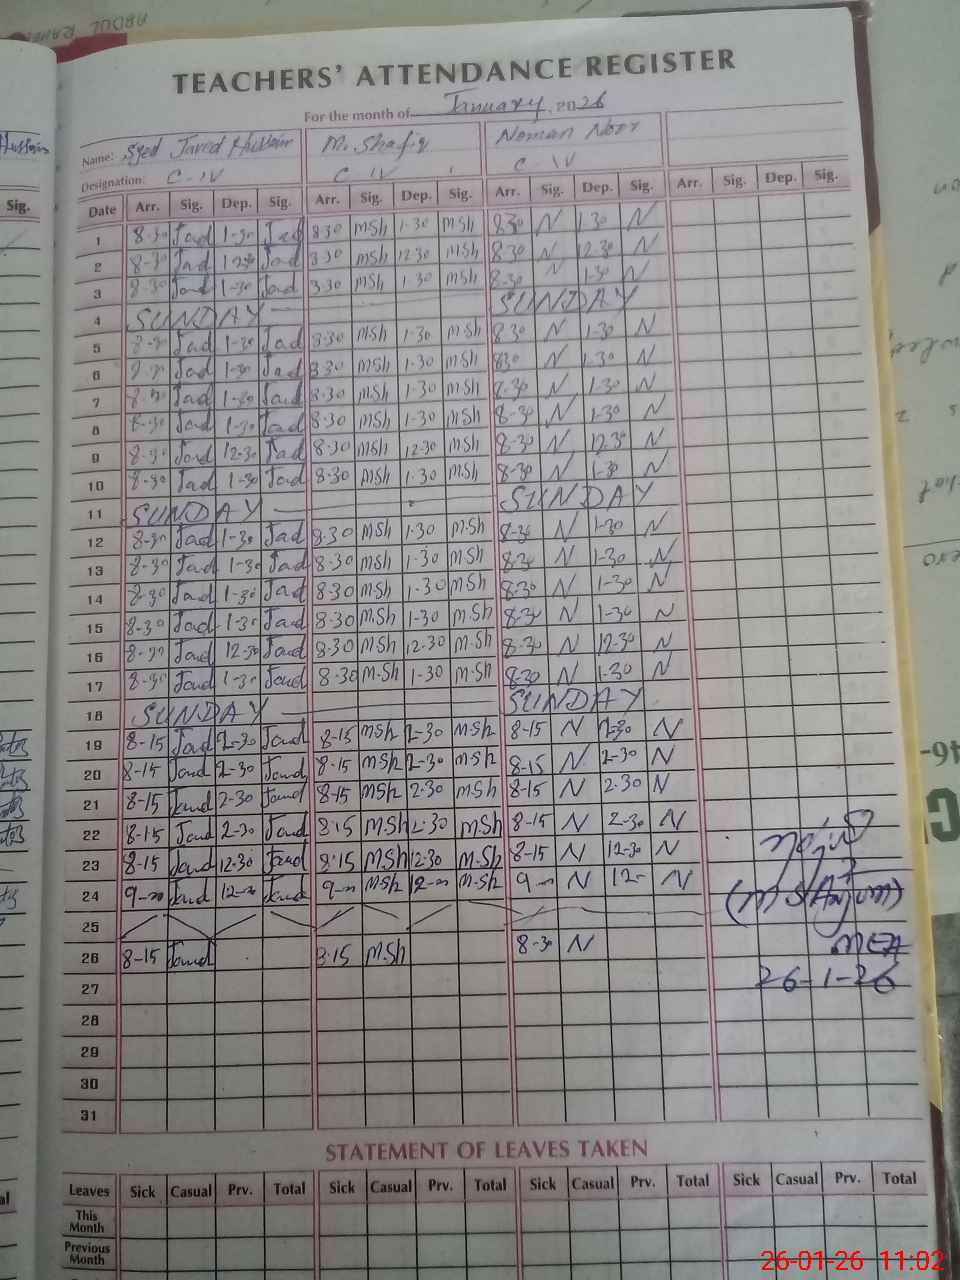 TEACHERS' ATTENDANCE REGISTER
For the month of January, 2026
Name: Syed Javed Hussain M. Shafiq Noman Noor
Designation: C-IV C-IV C IV
Date Arr. Sig. Dep. Sig. Arr. Sig. Dep. Sig. Arr. Sig. Dep. Sig. Arr. Sig. Dep. Sig.
1 8-30 Jad 1-30 Jad 8 30 M Sh 1-30 M Sh 8 30 N 1 30 N
2 8-30 Jad 12 30 Jad 8 30 M Sh 12 30 M Sh 8-30 N 12 30 N
3 8-30 Jad 1-30 Jad 8 30 M Sh 1 30 M Sh 8-30 N 1-30 N
4 SUNDAY SUNDAY
5 8-30 Jad 1-30 Jad 8-30 M Sh 1-30 M Sh 8 30 N 1-30 N
6 8-30 Jad 1-30 Jad 8 30 M Sh 1-30 M Sh 8 30 N 1-30 N
7 8-30 Jad 1-30 Jad 8-30 M Sh 1-30 M Sh 8-30 N 1-30 N
8 8-30 Jad 1-30 Jad 8-30 M Sh 1-30 M Sh 8-30 N 1-30 N
9 8-30 Jad 12-30 Jad 8-30 M Sh 12-30 M Sh 8-30 N 12 30 N
10 8-30 Jad 1-30 Jad 8-30 M Sh 1-30 M Sh 8-30 N 1-30 N
11 SUNDAY SUNDAY
12 8-30 Jad 1-30 Jad 8-30 M Sh 1-30 M Sh 8-30 N 1-30 N
13 8-30 Jad 1-30 Jad 8-30 M Sh 1-30 M Sh 8-30 N 1-30 N
14 8-30 Jad 1-30 Jad 8-30 M Sh 1-30 M Sh 8-30 N 1-30 N
15 8-30 Jad 1-30 Jad 8-30 M.Sh 1-30 M.Sh 8-30 N 1-30 N
16 8-30 Jad 12-30 Jad 8-30 M.Sh 12-30 M.Sh 8-30 N 12-30 N
17 8-30 Jad 1-30 Jad 8-30 M.Sh 1-30 M.Sh 8-30 N 1-30 N
18 SUNDAY SUNDAY
19 8-15 Jad 2-30 Jad 8-15 M Sh 2-30 M Sh 8-15 N 2-30 N
20 8-15 Jad 2-30 Jad 8-15 M Sh 2-30 M Sh 8-15 N 2-30 N
21 8-15 Jad 2-30 Jad 8-15 M Sh 2-30 M Sh 8-15 N 2-30 N
22 8-15 Jad 2-30 Jad 8-15 M.Sh 2-30 M.Sh 8-15 N 2-30 N
23 8-15 Jad 12-30 Jad 8-15 M Sh 12-30 M.Sh 8-15 N 12-30 N
24 9-00 Jad 12-00 Jad 9-00 M.Sh 12-00 M.Sh 9-00 N 12- N
(M S Anjum)
25
26 8-15 Jad 8-15 M.Sh 8-30 N
MEA
27
26-1-26
28
29
30
31
STATEMENT OF LEAVES TAKEN
Leaves Sick Casual Prv. Total Sick Casual Prv. Total Sick Casual Prv. Total Sick Casual Prv. Total
This Month
Previous Month
26-01-26 11:02